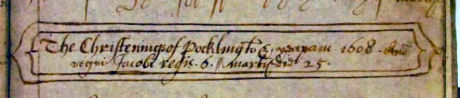 The Christenings of Pocklington 1608. Anō
regni Jacobi regis. 6. martij die 25.